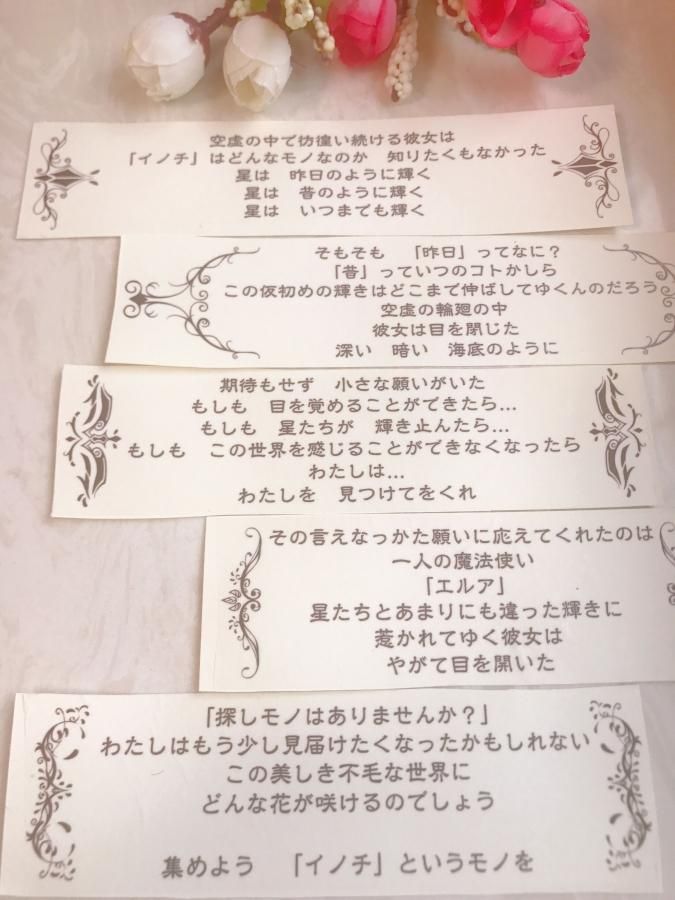 空虚の中で彷徨い続ける彼女は
「イノチ」はどんなモノなのか　知りたくもなかった
星は　昨日のように輝く
星は　昔のように輝く
星は　いつまでも輝く
そもそも　「昨日」ってなに？
「昔」っていつのコトかしら
この仮初めの輝きはどこまで伸ばしてゆくんのだろう
空虚の輪廻の中
彼女は目を閉じた
深い　暗い　海底のように
期待もせず　小さな願いがいた
もしも　目を覚めることができたら…
もしも　星たちが　輝き止んたら…
もしも　この世界を感じることができなくなったら
わたしは…
わたしを　見つけてをくれ
その言えなっかた願いに応えてくれたのは
一人の魔法使い
「エルア」
星たちとあまりにも違った輝きに
惹かれてゆく彼女は
やがて目を開いた
「探しモノはありませんか？」
わたしはもう少し見届けたくなったかもしれない
この美しき不毛な世界に
どんな花が咲けるのでしょう
集めよう　「イノチ」というモノを